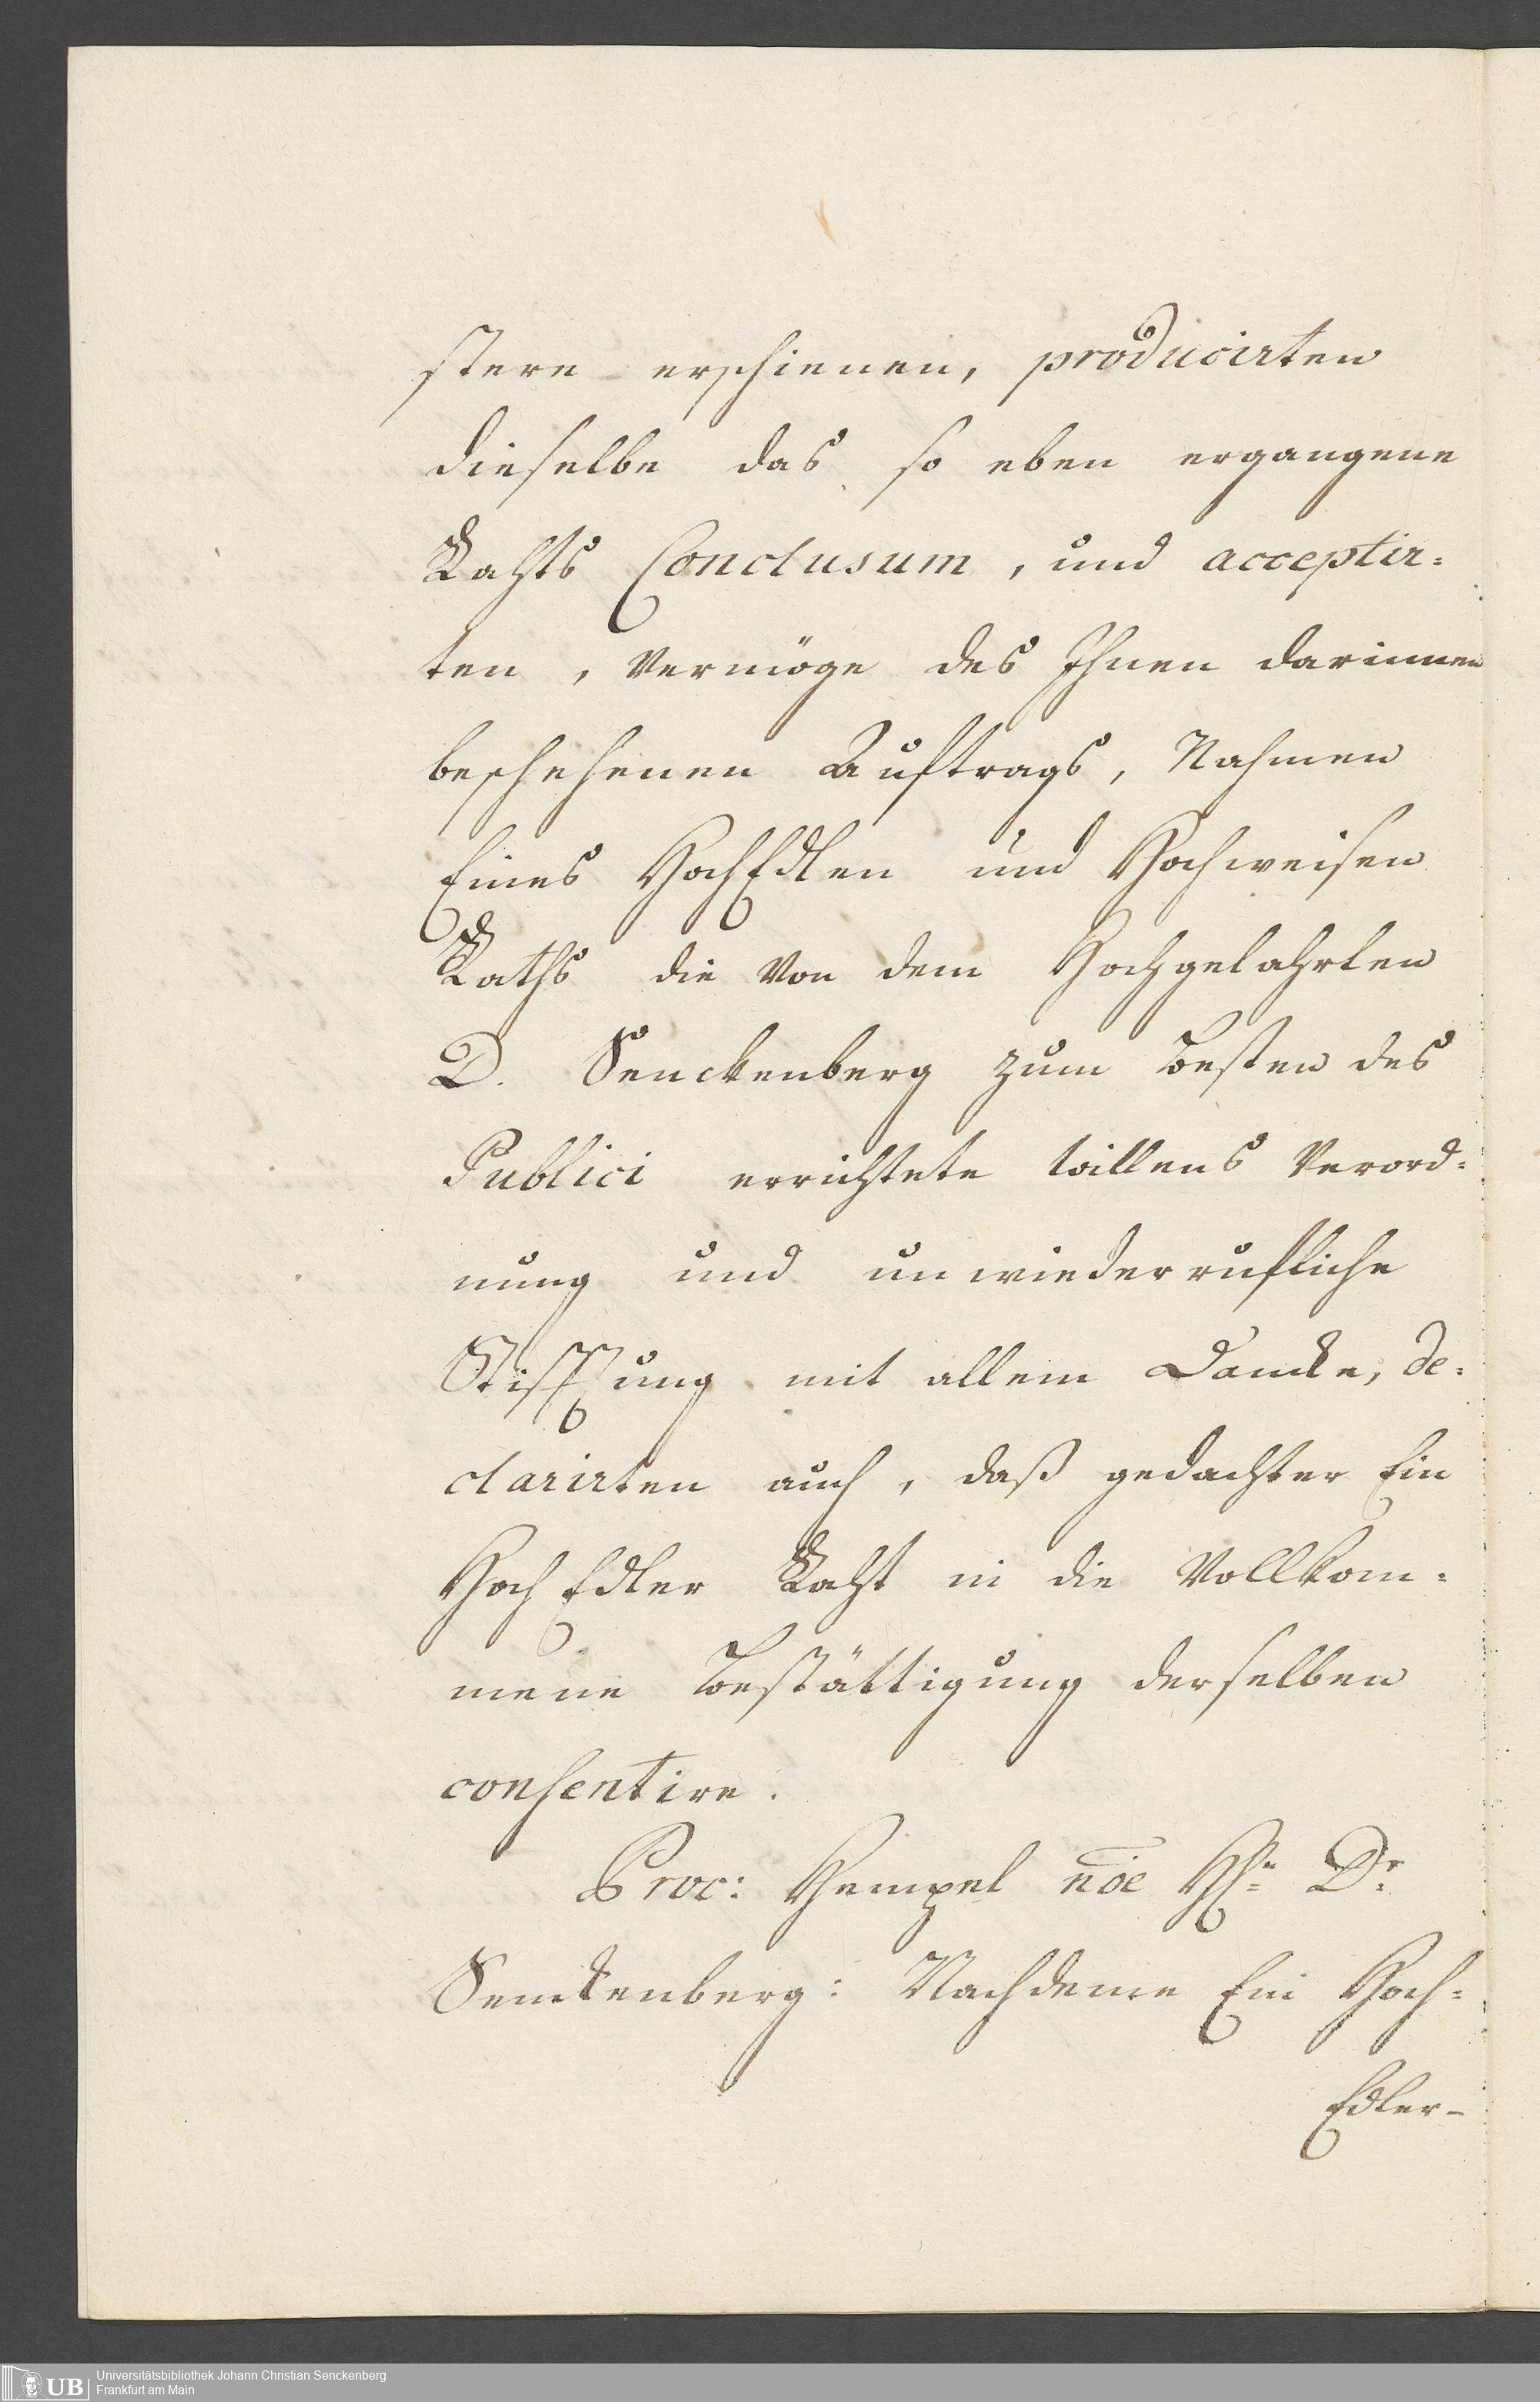 stere erschienen, producirten
dieselbe das so eben ergangene
Rahts Conclusum, und acceptir=
ten, Vermöge des Ihnen darinnen
beschehenen Auftrags, Nahmen
Eines HochEdlen und Hochweisen
Raths die Von dem Hochgelahrten
D. Senckenberg zum Besten des
Publici errichtete Willens Verord=
nung und unwiederrufliche
Stifftung mit allem Dancke, de=
clarirten auch, daß gedachter Ein
Hoch Edler Raht in die Vollkom=
mene Bestättigung derselben
consentire.
Proc: Hempel nõie H.n Dr.
Senckenberg: Nachdeme Ein Hoch=
Edler-
UB Universitätsbibliothek Johann Christian Senckenberg
Frankfurt am Main